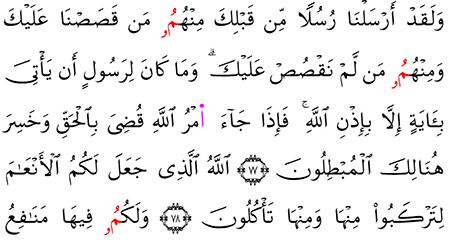 وَلَقَدْ أَرْسَلْنَا رُسُلًا مِّن قَبْلِكَ مِنْهُمُۥ مَن قَصَصْنَا عَلَيْكَ
وَمِنْهُمُۥ مَن لَّمْ نَقْصُصْ عَلَيْكَۗ وَمَا كَانَ لِرَسُولٍ أَن يَأْتِىَ
بِـَٔايَةٍ إِلَّا بِإِذْنِ اللَّهِۚ فَإِذَا جَآءَ ا۬مْرُ اللَّهِ قُضِىَ بِالْحَقِّ وَخَسِرَ
هُنَالِكَ الْمُبْطِلُونَ ٧٧ اللَّهُ الَّذِى جَعَلَ لَكُمُ الْأَنْعَٰمَ
لِتَرْكَبُوا۟ مِنْهَا وَمِنْهَا تَأْكُلُونَ ٧٨ وَلَكُمُۥ فِيهَا مَنَٰفِعُ